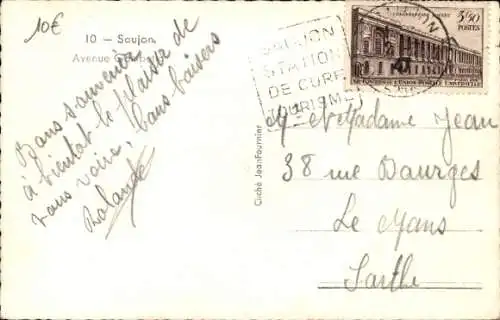 10€
10 — Saujon
Avenue Gambetta
Bons souvenirs
à bientôt le plaisir de
vous voir, bons baisers
Rolande
SAUJON
STATION
DE CURE
TOURISME
3F50
POSTES
Cliché JeanFournier
M et Madame Jean
38 rue Bourges
Le Mans
Sarthe